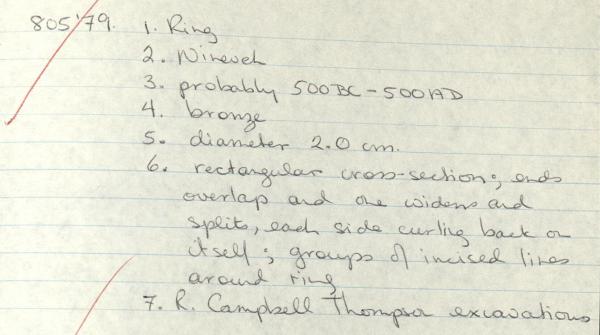 805'79. 1. Ring
2. Nineveh
3. probably 500BC-500AD
4. bronze
5. diameter 2.0 cm.
6. rectangular cross-section; ends
overlap and one widens and
splits, each side curling back on
itself; groups of incised lines
around ring
7. R. Campbell Thompson excavations